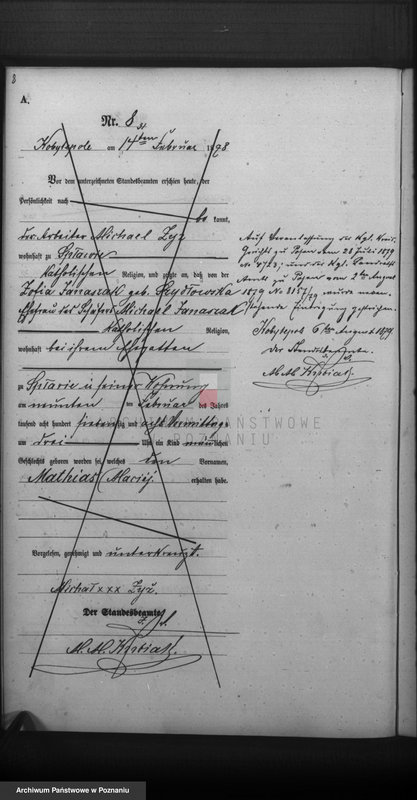 A.
Nr. 8
Kobylepole am 14ten Februar 1878
Vor dem unterzeichneten Standesbeamten erschien heute, der
Persönlichkeit nach
be kannt,
der Arbeiter Michael Zyz
wohnhaft zu Spławie
katholischen Religion, und zeigte an, daß von der
Zofia Janaszak geb. Szydłowska
Ehefrau des Michael Janaszak
katholischen Religion,
wohnhaft bei ihrem Ehegatten
zu Spławie in seiner Wohnung
am neunten ten Februar des Jahres
tausend acht hundert siebenzig und acht Vormittags
um drei Uhr ein Kind männlichen
Geschlechts geboren worden sei, welches den Vornamen,
Mathias (Maciej) erhalten habe.
Vorgelesen, genehmigt und unterkreuzt.
Michał xxx Zyz.
Der Standesbeamte.
Auf Veranlassung des Kgl. Kreis
Gerichts zu Posen vom 28 Juli 1879
und des Kgl. Landraths
Amts zu Posen vom August
1879 No.
stehende Eintragung gestrichen.
Kobylepole 6ten August 1879.
Der Standesbeamte.
ARCHIWUM PAŃSTWOWE
W POZNANIU
Archiwum Państwowe w Poznaniu